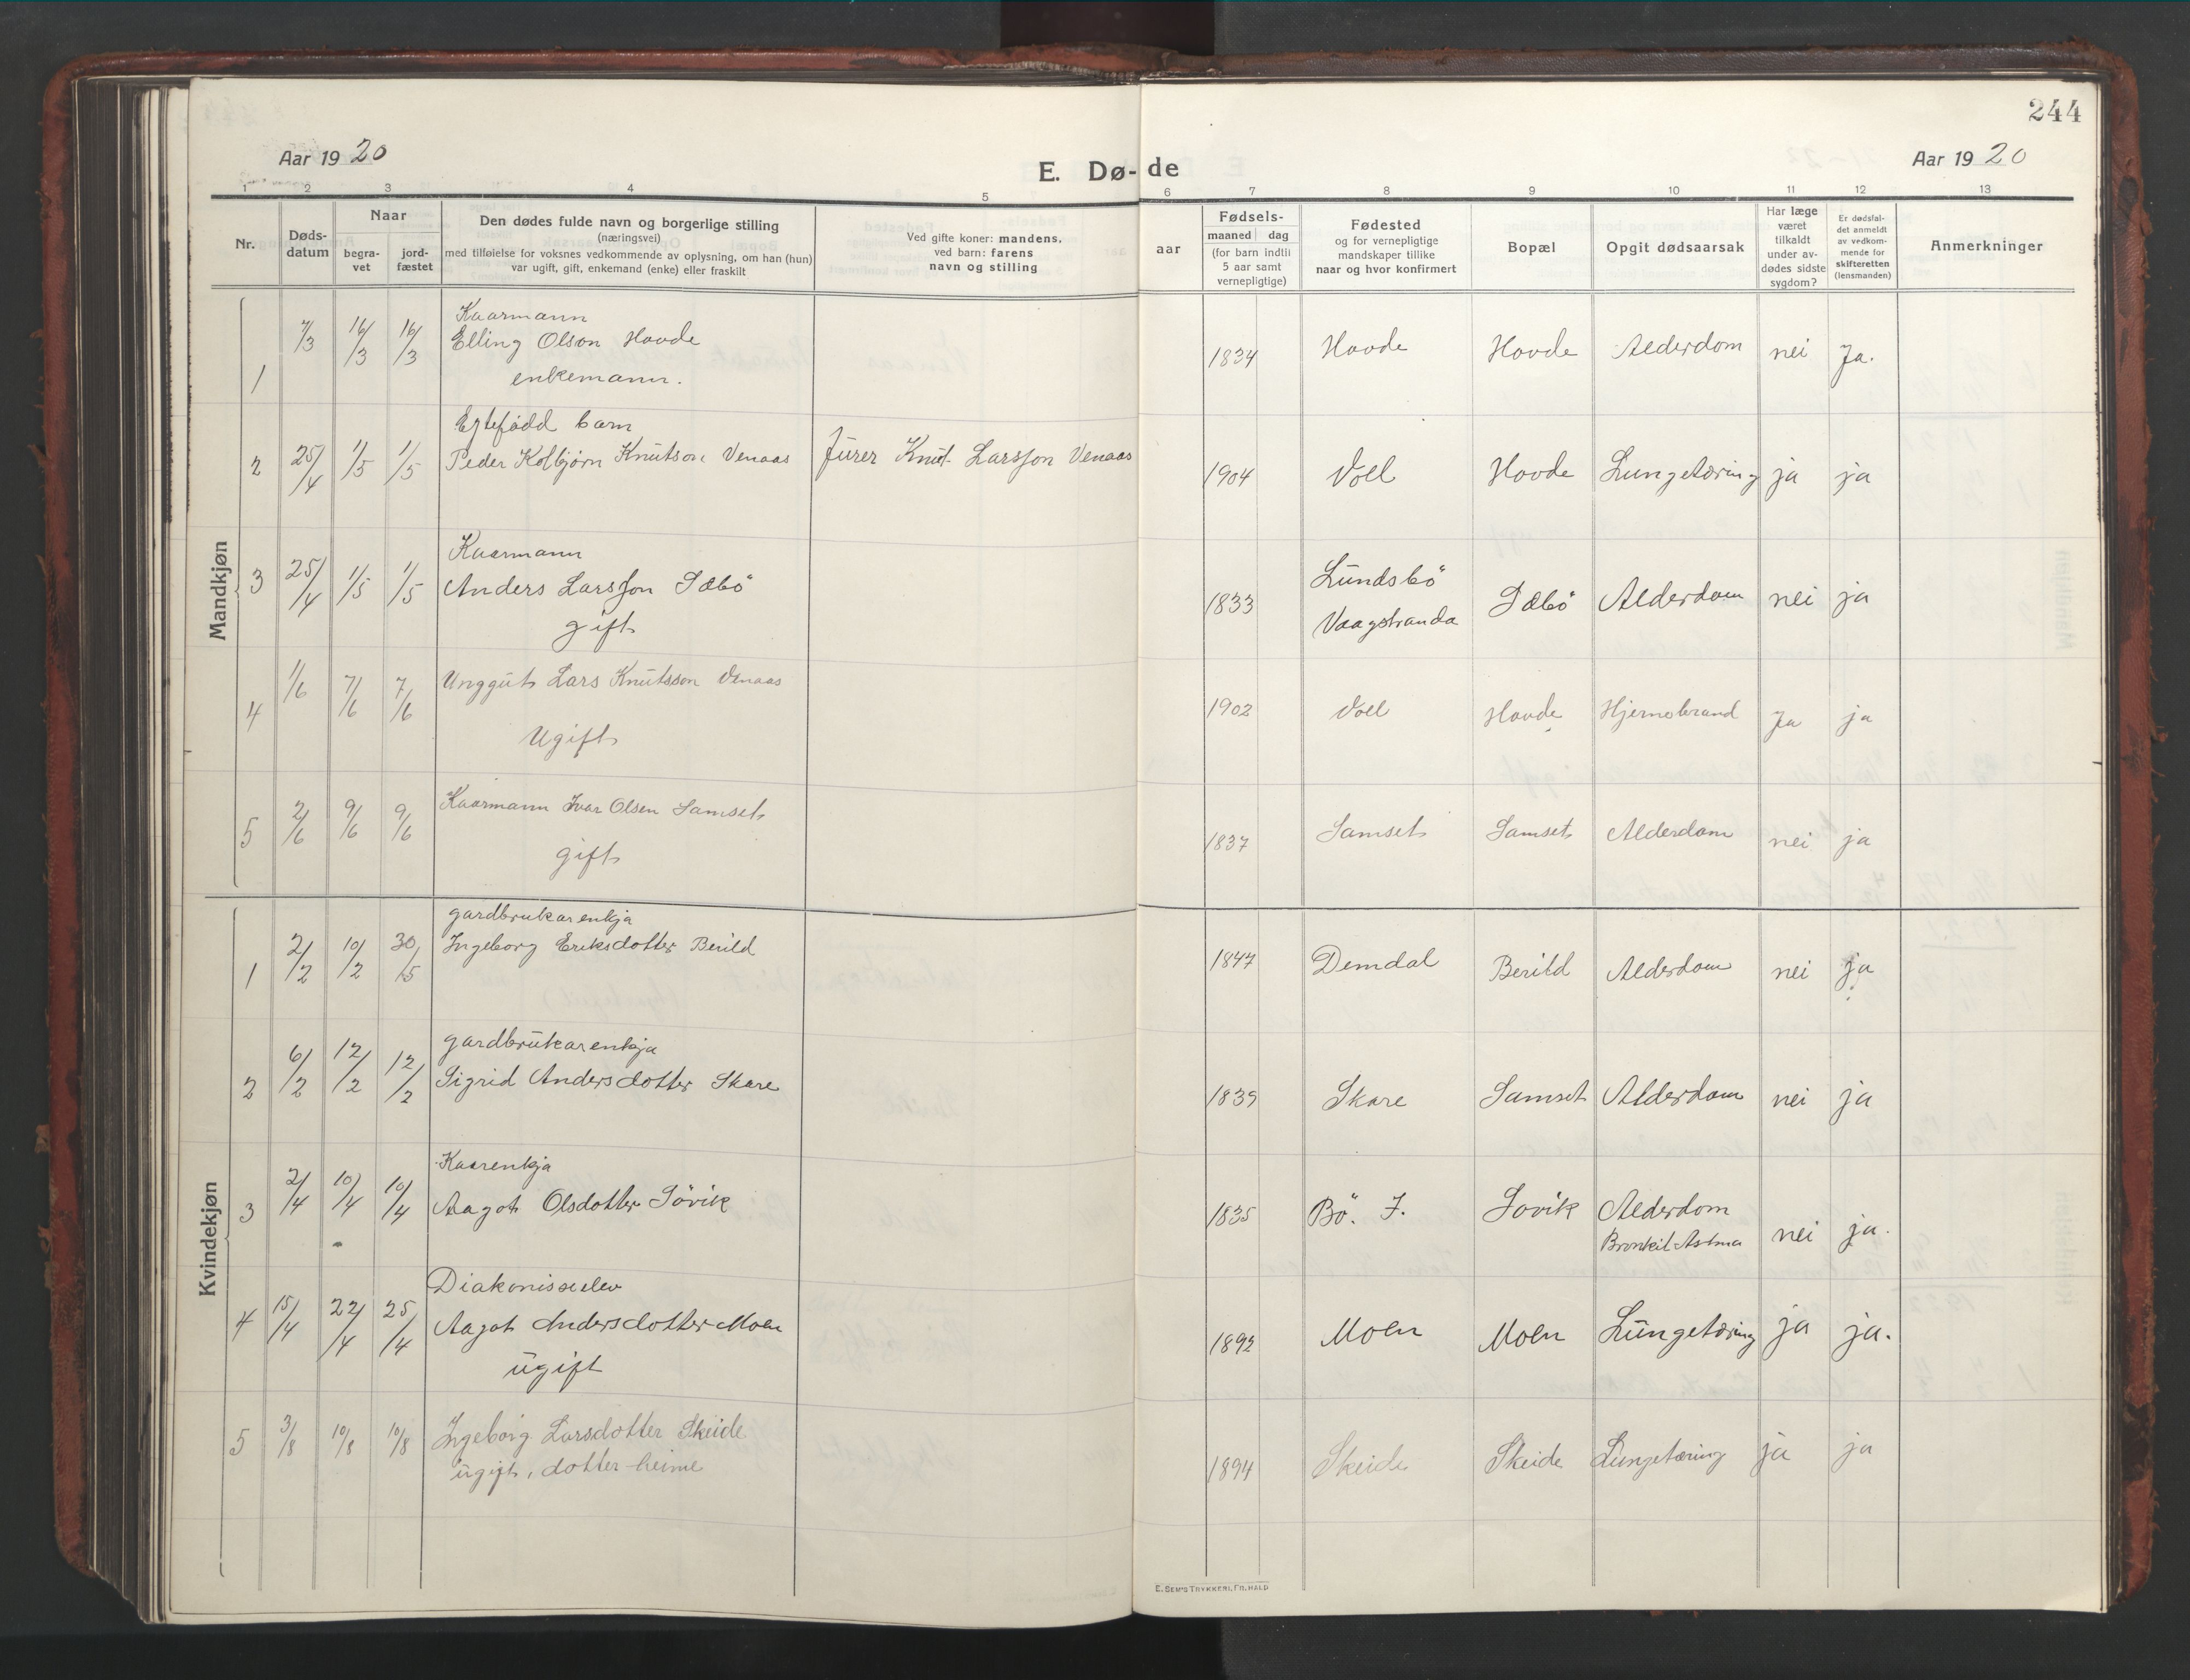 244
Aar 1920
E. Dø-de
Aar 1920
1 2 3 4 5 6 7 8 9 10 11 12 13
Nr.
Døds-
datum
Naar
begra-
vet
jord-
fæstet
Den dødes fulde navn og borgerlige stilling
(næringsvei)
med tilføielse for voksnes vedkommende av oplysning, om han (hun)
var ugift, gift, enkemand (enke) eller fraskilt
Ved gifte koner: mandens,
ved barn: farens
navn og stilling
aar
Fødsels-
maaned dag
(for barn indtil
5 aar samt
vernepligtige)
Fødested
og for vernepligtige
mandskaper tillike
naar og hvor konfirmert
Bopæl
Opgit dødsaarsak
Har læge
været
tilkaldt
under av-
dødes sidste
sygdom?
Er dødsfal-
det anmeldt
av vedkom-
mende for
skifteretten
(lensmanden)
Anmerkninger
Mandkjøn
Kaarmann
1 7/3 16/3 16/3 Elling Olson Hovde 1834 Hovde Hovde Alderdom nei Ja.
enkemann.
Egtefødd barn
2 25/4 1/5 1/5 Peder Kolbjørn Knutson Venaas Furer Knut Larsson Venaas 1904 Voll Hovde Lungetæring ja ja
Kaarmann
3 25/4 1/5 1/5 Anders Larsson Sæbö 1833 Lundsbö Vaagstranda Sæbö Alderdom nei ja
gift
4 1/6 7/6 7/6 Unggut Lars Knutsson Venaas 1902 Voll Hovde Hjernebrand Ja ja
Ugift
5 2/6 9/6 9/6 Kaarmann Ivar Olsen Samset 1837 Samset Samset Alderdom nei ja
gift
Kvindekjøn
gardbrukarenkja
1 2/2 10/2 30/5 Ingeborg Eriksdotter Berild 1847 Demdal Berild Alderdom nei ja
gardbrukarenkja
2 6/2 12/2 12/2 Sigrid Andersdotter Skare 1839 Skare Samset Alderdom nei ja
Kaarenkja
3 2/4 10/4 10/4 Aagot Olsdotter Sövik 1835 Bö. I. Sovik Alderdom nei ja.
Bronkit Astma
Diakonisseelev
4 15/4 22/4 25/4 Aagot Andersdotter Moen 1892 Moen Moen Lungetæring ja ja.
ugift
5 3/8 10/8 10/8 Ingeborg Larsdotter Skeide 1894 Skeide Skeide Lungetæring ja ja
ugift, dotter heime
E. SEM'S TRYKKERI, FR.HALD